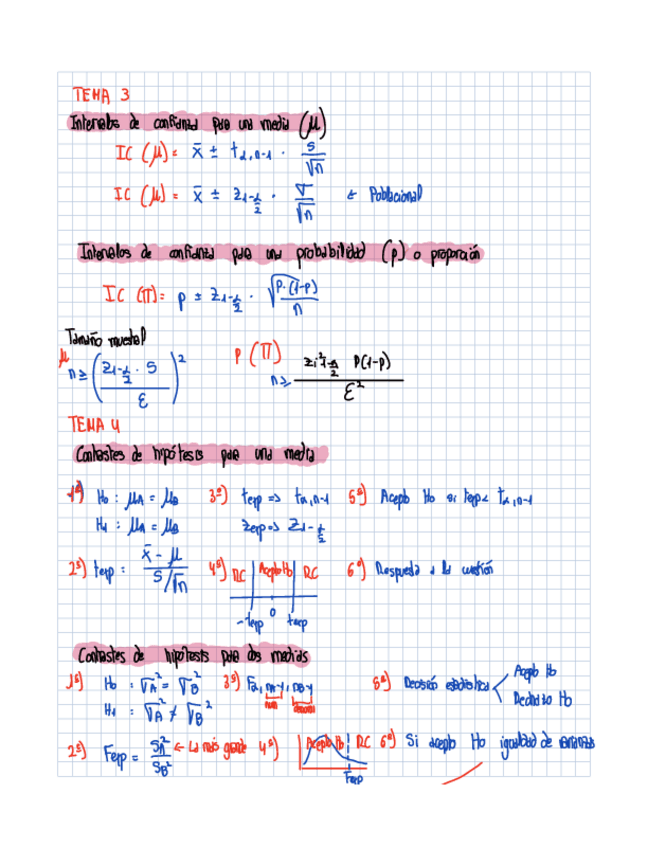 TEMA 3
Intervalos de confianza para una media (μ)
IC (μ) = x̄ ± t α, n-1 · s/√n
IC (μ) = x̄ ± z 1-α/2 · σ/√n ← Poblacional
Intervalos de confianza para una probabilidad (p) o proporción
IC (π) = p ± z 1-α/2 · √(p·(1-p))/n
Tamaño muestral
μ n ≥ (z 1-α/2 · s / ε)²
P (π) n ≥ z² 1-α/2 P(1-p) / ε²
TEMA 4
Contrastes de hipótesis para una media
1º) H₀ : μA = μB 3º) texp => t α, n-1 5º) Acepto H₀ si texp < t α, n-1
H₁ : μA = μB zexp => z 1-α/2
2º) texp : x̄ - μ / s/√n 4º) RC Acepto H₀ RC 6º) Respuesta a la cuestión
-texp 0 texp
Contrastes de hipótesis para dos medias
1º) H₀ : σA² = σB² 3º) F α, nA-1, nB-1 5º) Decisión estadística Acepto H₀
H₁ : σA² ≠ σB² num denom Rechazo H₀
2º) Fexp = SA²/SB² ← La más grande 4º) Acepto H₀ RC 6º) Si acepto H₀ igualdad de varianzas
Fexp